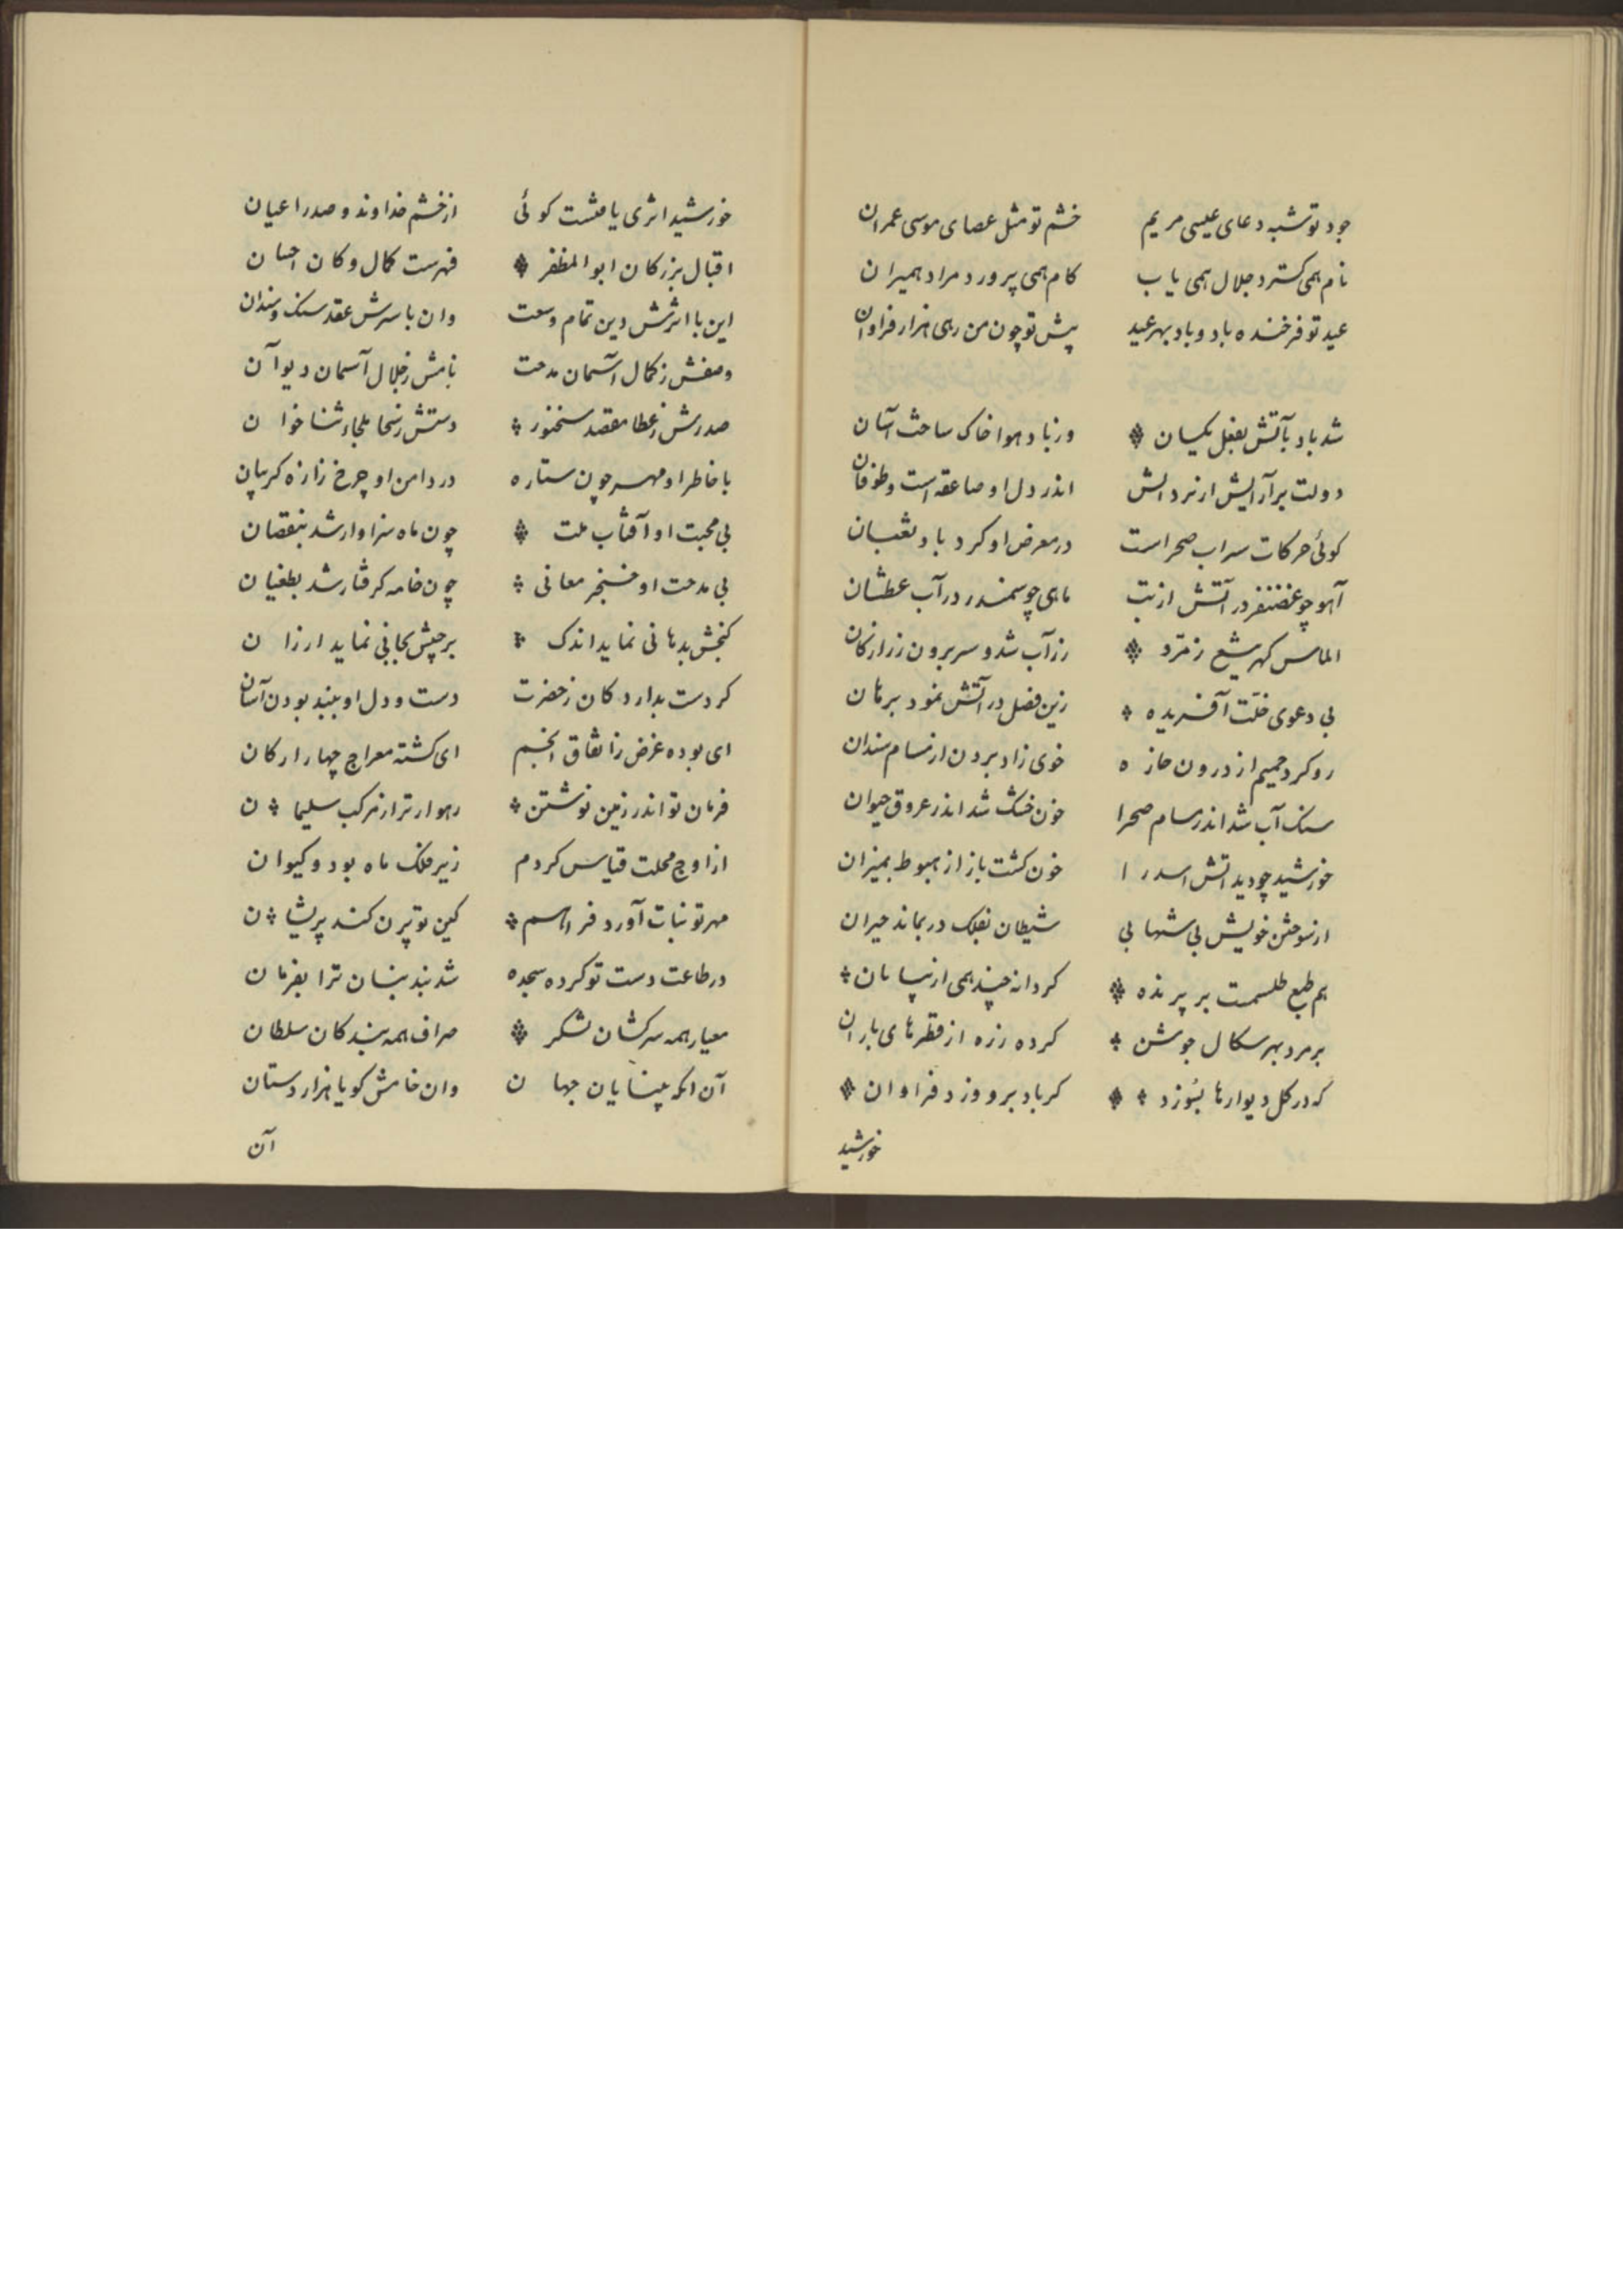 جود تو شبه دعای عیسی مریم خشم تو مثل عصای موسی عمران
نام همی کستر د جلال همی یاب کام همی پرور د مراد همیران
عید تو فرخنده باد و باد بهر عید پیش تو چون من رهی هزار فراوان
شد باد بآتش بفعل یکسان ورنه باد هوا خاک ساحت آسان
دولت برآرایش از نرد اندر دل او صاعقه است و طوفان
کوئی حرکات سراب صحراست در معرض او کرد باد ثعبان
آهو چو غضنفر در آتش از تب ماهی چو سمندر در آب عطشان
الماس کهر شع زمرد زر آب شد و سر برون زر از کان
بی دعوی خلّت آفریده زین فصل در آتش نمود برهان
رو کرد حمیم از درون خازه خوی زاد بردن از مسام سندان
سنک آب شد اندر مسام صحرا خون خشک شد اندر عروق حیوان
خورشید چو دید اتش اسد را خون کشت باز از هبوط بمیزان
از سوختن خویش بی شهابی شیطان بفلک در بماند حیران
هم طبع طلسمت بر پرنده کر دانه چند همی از بیابان
بر مرد بهر سکال جوشن کرده زره از قطرهای باران
که در کل دیوارها بنوزد کر باد برو وزد فراوان
خورشید
خورشید اثری یافتست کوئی از خشم خداوند و صدر اعیان
اقبال بزرکان ابو المظفر فهرست کمال و کان احسان
این با اثرش دین تمام وسعت وان با سرش عقد سنک و سندان
وصفش ز کمال آسمان مدحت نامش ز جلال آسمان دیوان
صدرش ز عطا مقصد سخنور دستش ز سخا ملجاء ثنا خوان
با خاطر او مهر چون ستاره در دامن او چرخ زازه کریپان
بی محبت او آفتاب ملت چون ماه سزاوار شد بنقصان
بی مدحت او خنجر معانی چون خامه کرفتار شد بطغیان
کنجش بدهانی نماید اندک برجیش بجانی نماید ارزان
کر دست بدارد کان ز حضرت دست و دل او ببند بودن آسان
ای بوده غرض زاتفاق انجم ای کشته معراج چهار ارکان
فرمان تو اندر زمین نوشتن رهوار تر از مرکب سلیمان
از اوج محلت قیاس کردم زیر فلک ماه بود و کیوان
مهر تو نبات آورد فراهم کین تو پرن کند پریشان
در طاعت دست تو کرده سجده شد بند بنسان ترا بفرمان
معیار همه سرکشان لشکر صراف همه بندکان سلطان
آن انکه بینایان جهان وان خامش کویا هزار دستان
آن